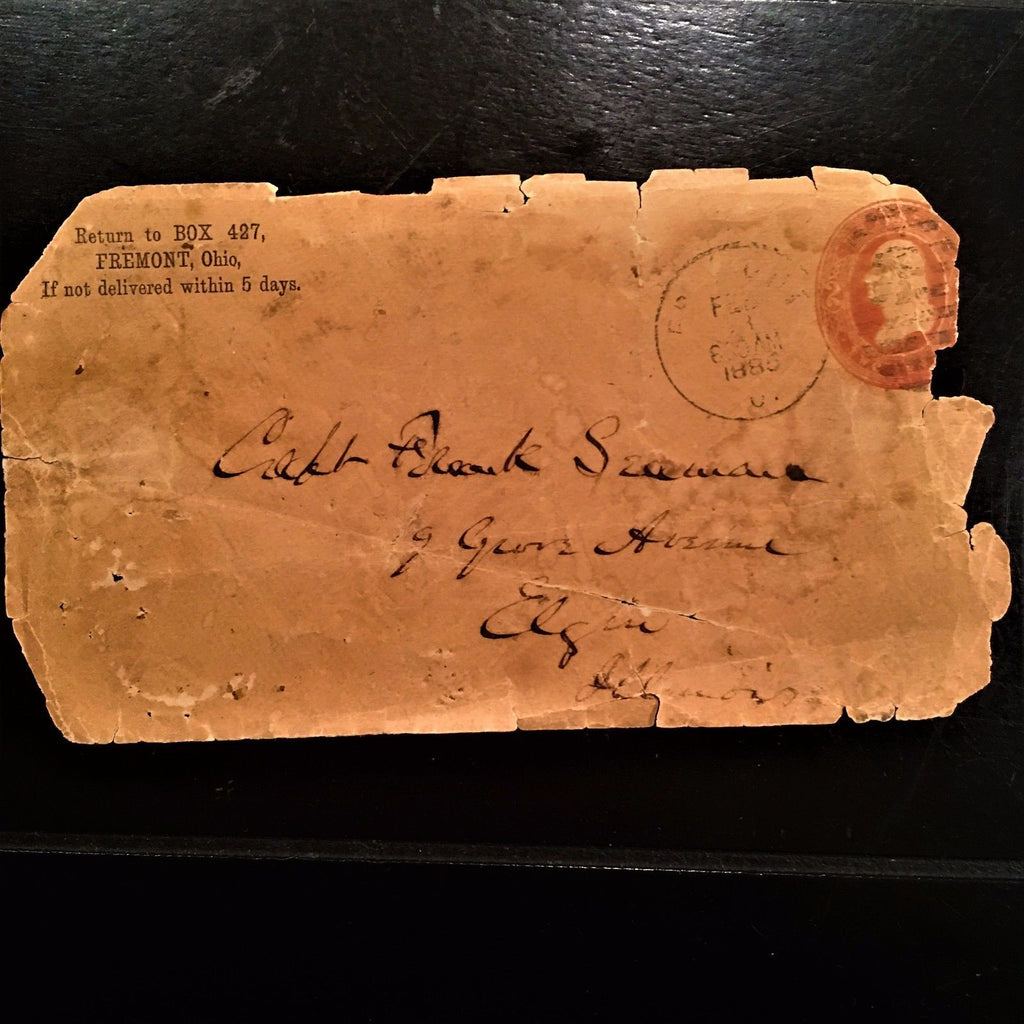 Return to BOX 427,
FREMONT, Ohio,
If not delivered within 5 days.
FEB
AM
O.
Capt Frank Seamans
9 Grove Avenue
Elgin
Illinois